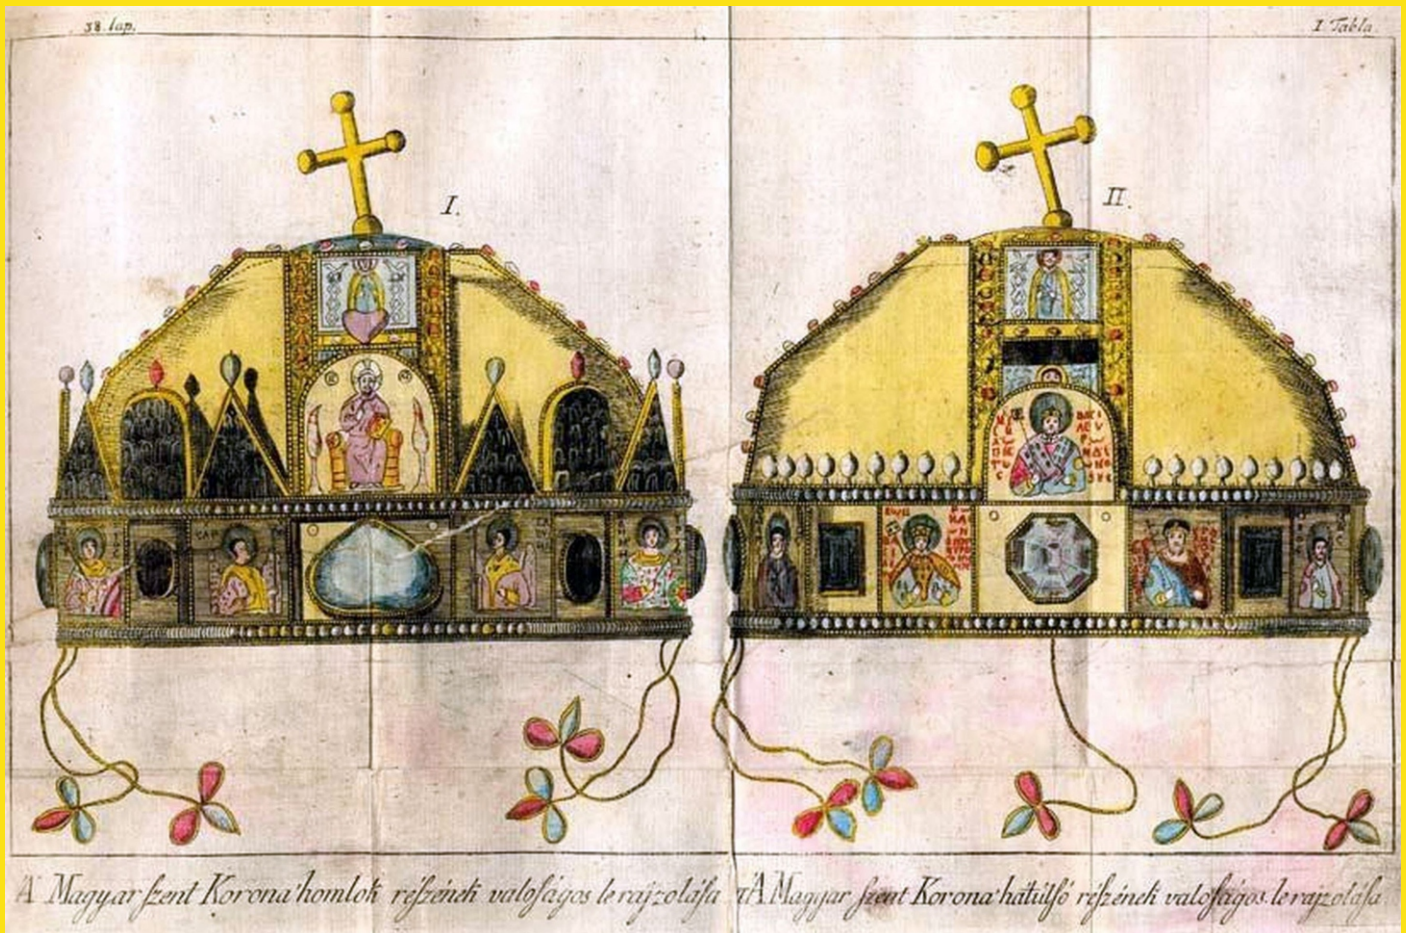 38. lap.
I. Tabla.
I.
II.
A' Magyar ſzent Korona' homlok réſzének valoſágos le rajzoláſa
A' Magyar ſzent Korona' hátulſó réſzének valoſágos le rajzoláſa